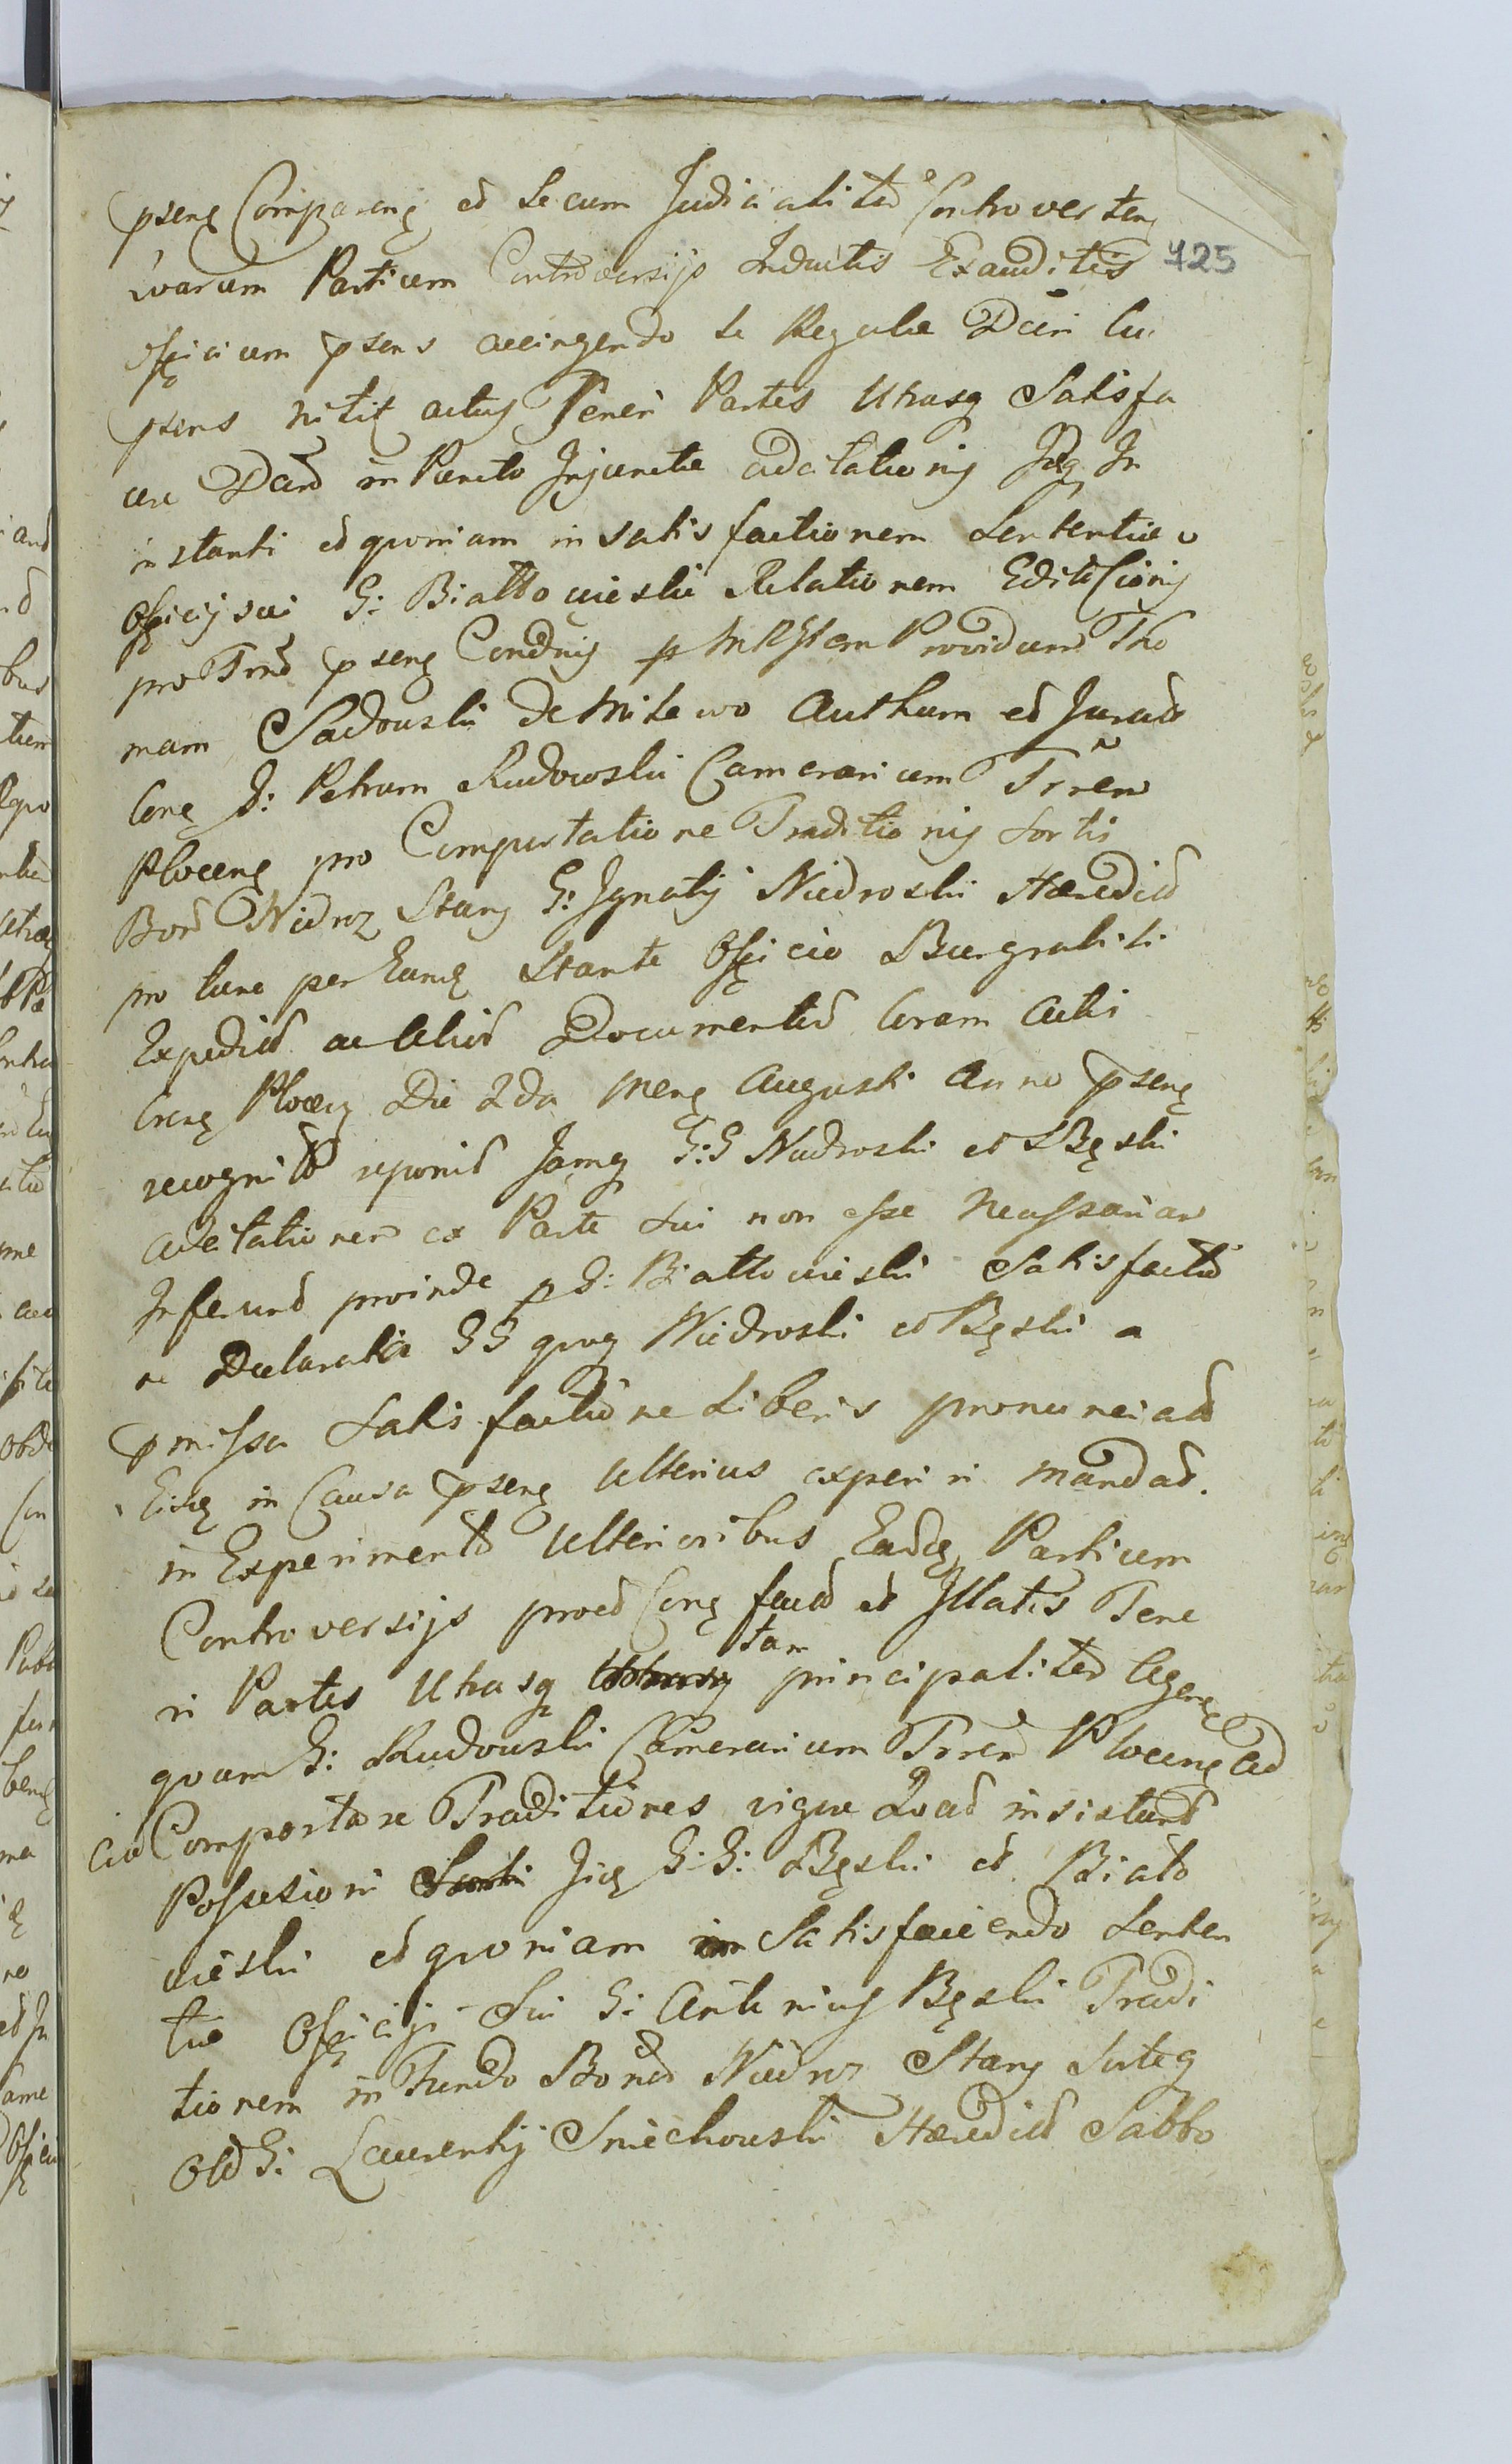 psenę Comparenę et Secum Judicialitŭ Controverten
quarum Partium Controversijs Inductis Exauditis 725
Officium psens accingendo se Regulæ Dæri cu
psens nitit actus Teneri Partes Utrasq Satisfa
cere Danŏ in Puncto Injunctæ adcitationis Idq In
instanti et quoniam in satisfactionem Sententiæ
Officij sui G: Białłowieski Relationem Edit
pro Trnd psenę Condnis p Mnstem Providum Tho
mam Sadowski de Milewo Authum et Jurat
Conę G: Petrum Rudowski Camerarium Trrem
Plocenę pro Comportatione Traditionis Sortis
Bord Niedroz Stary G: Ignatij Niedroski Hæredit
pro tunc per Eundę Stante Officio Burgrabili
Expedit ac aliud Documentŭ Coram Actis
Crenę Plocen Die 2da Menę Augusti Anno psenę
recognitŏ reponit Jamq G:G Niedroski et Bęski
adcitationem ex Parte Sui non esse Necessariam
Inferunt proinde p G: Białłowieski Satisfactio
ne Declarata GG quoq Niedroski et Bęski a
pmissa Satisfactione Liberis pronunciat
Eisdę in Causa psenę Ulterius experiri mandat.
in Experimento Ulterioribus Earŭdę Partium
Controversijs proed Conę facit et Illatis Tene
ri Partes Utrasq tam principaliter Agenę
quam G: Rudowski Camerarium Trrem Plocenę ad
Comportare Traditiones vigore Quar insistunt
Possesioni Idę G:G: Bęski et Biało
wieski et quoniam in Satisfaciendo Senten
tiæ Officij Sui G: Antonius Bęski Tradi
tionem in Fundo Bonor Niedroz Stary Sorteq
Olĭ G: Laurentij Smiechowski Hæredit Sabbo